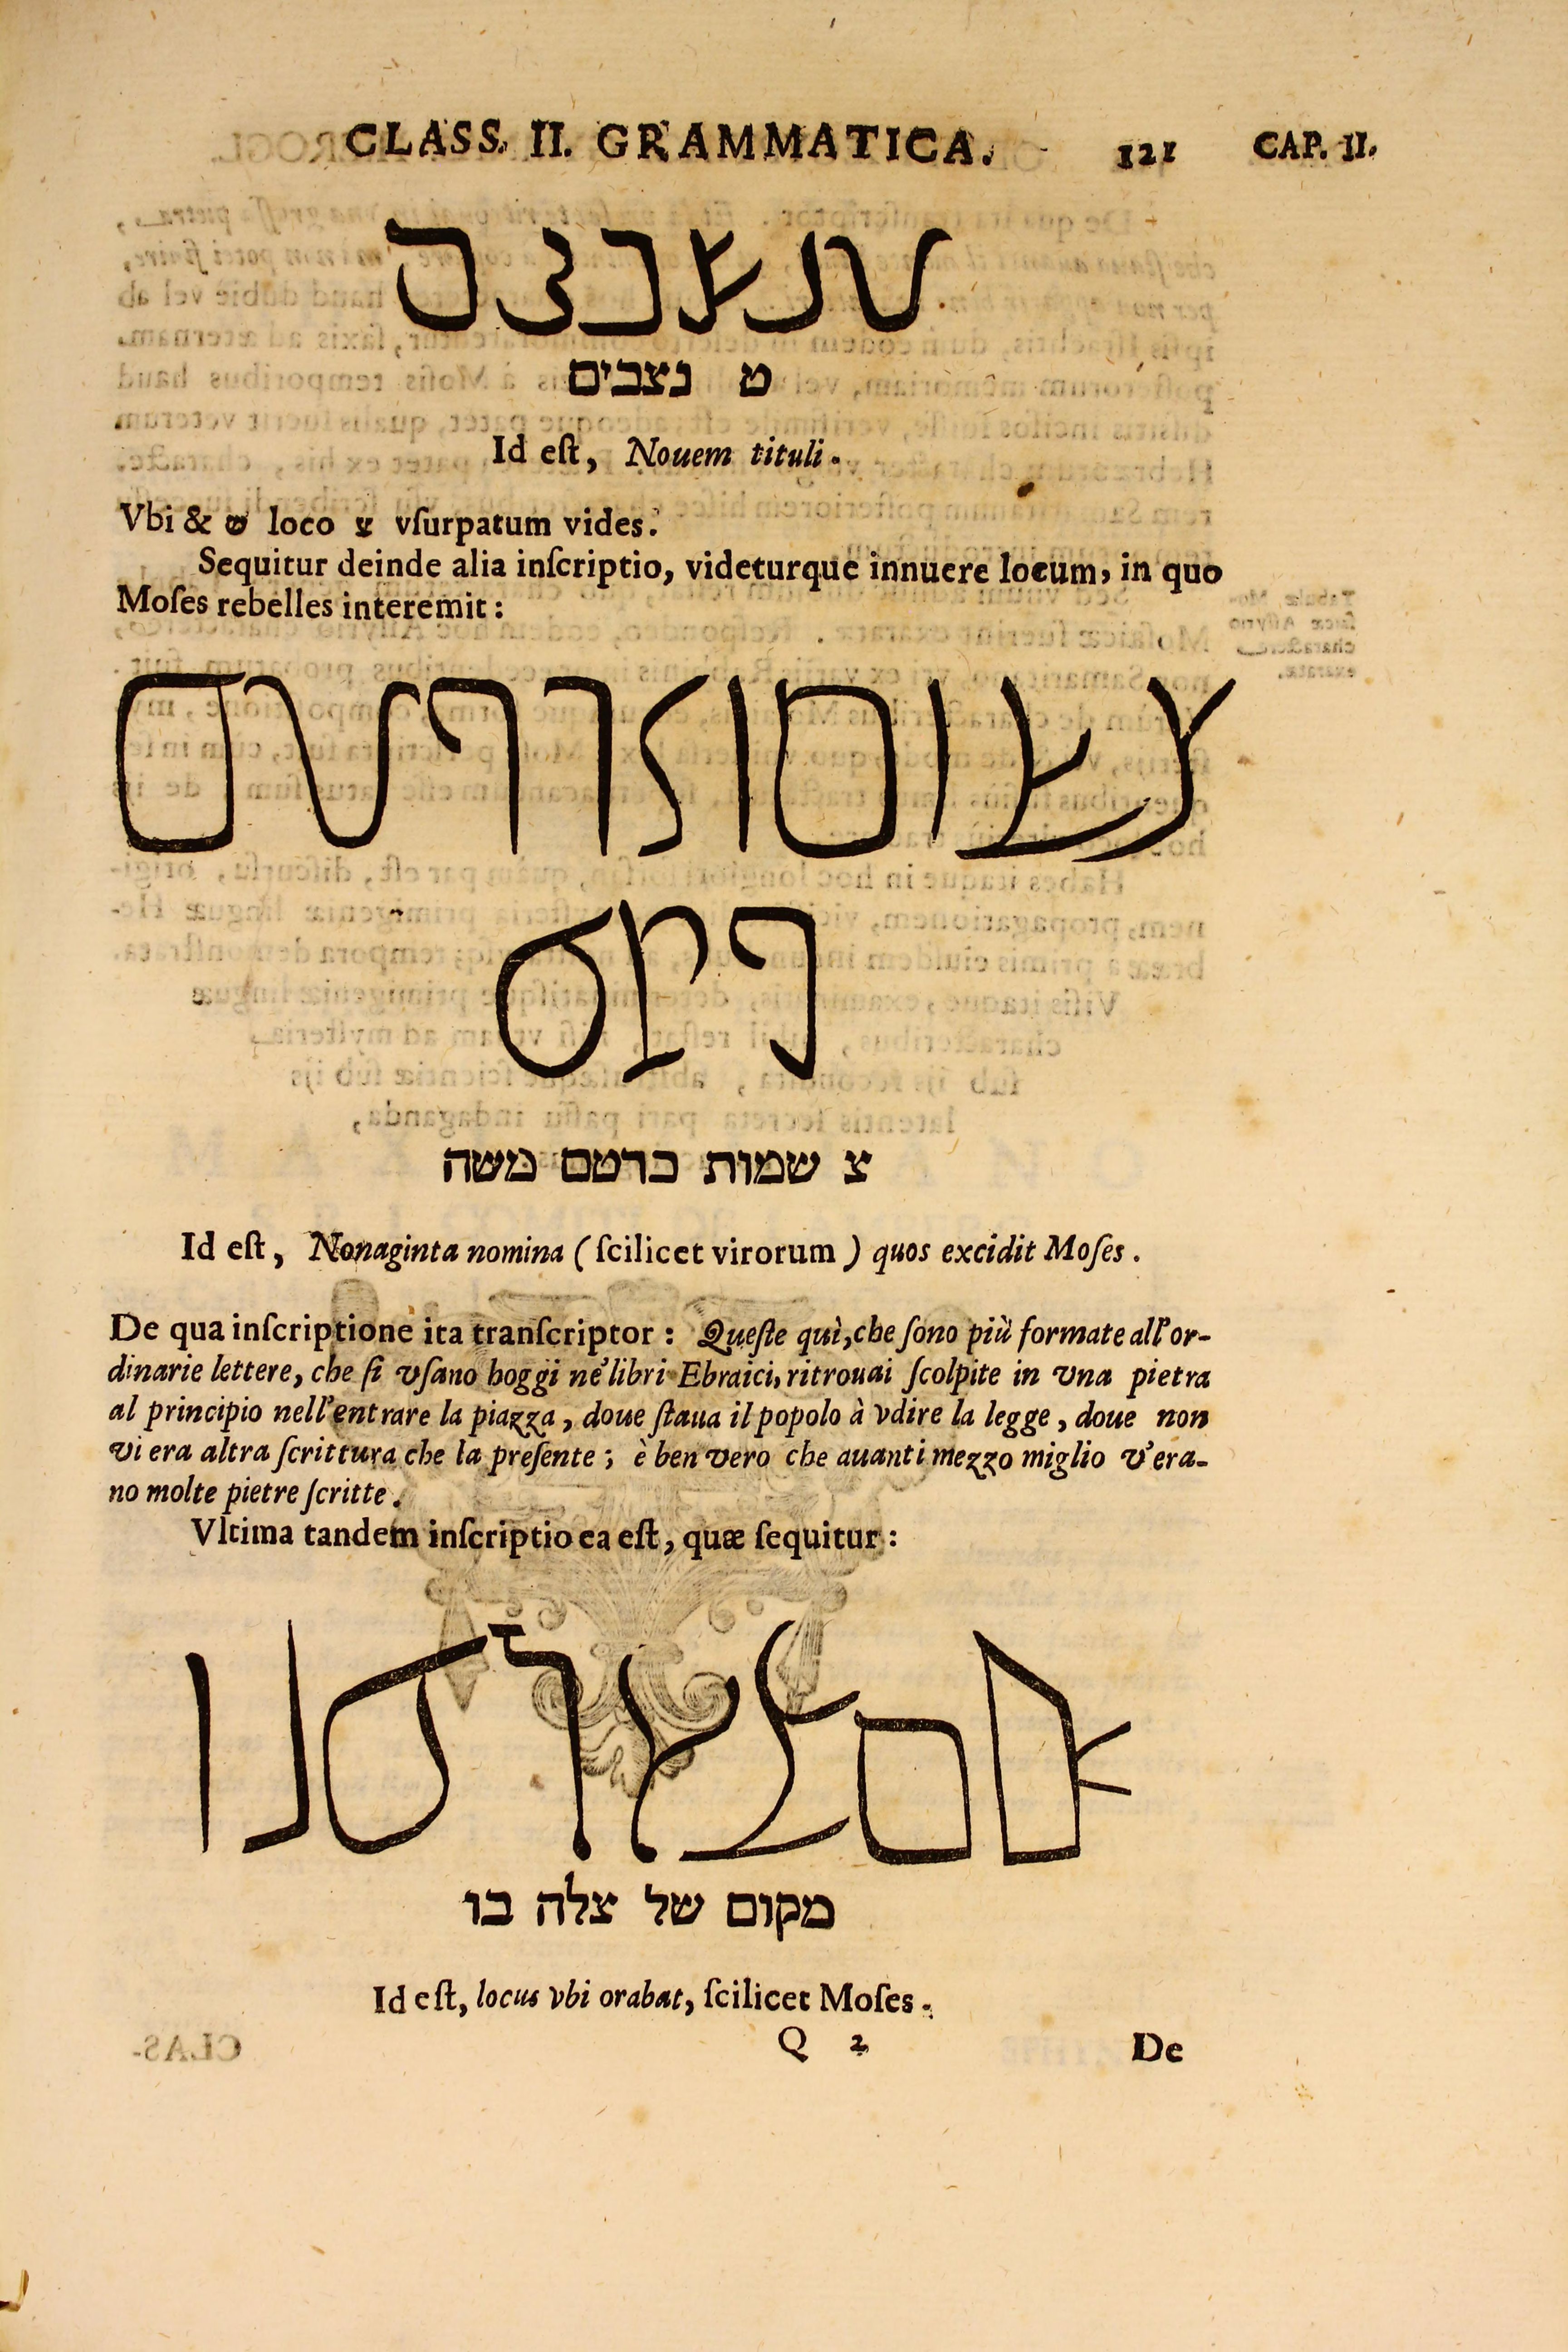 CLASS. II. GRAMMATICA. 121 CAP. II.
ט נצבים
Id eſt, Nouem tituli.
Vbi & ש loco צ vſurpatum vides.
Sequitur deinde alia inſcriptio, videturque innuere locum, in quo
Moſes rebelles interemit:
צ שמות כרטם משה
Id eſt, Nonaginta nomina (ſcilicet virorum) quos excidit Moſes.
De qua inſcriptione ita tranſcriptor: Queſte quì, che ſono più formate all'or-
dinarie lettere, che ſi vſano hoggi ne' libri Ebraici, ritrouai ſcolpite in vna pietra
al principio nell'entrare la piazza, doue ſtaua il popolo à vdire la legge, doue non
vi era altra ſcrittura che la preſente; è ben vero che auanti mezzo miglio v'era-
no molte pietre ſcritte.
Vltima tandem inſcriptio ea eſt, quæ ſequitur:
מקום של צלה בו
Id eſt, locus vbi orabat, ſcilicet Moſes.
Q 2 De